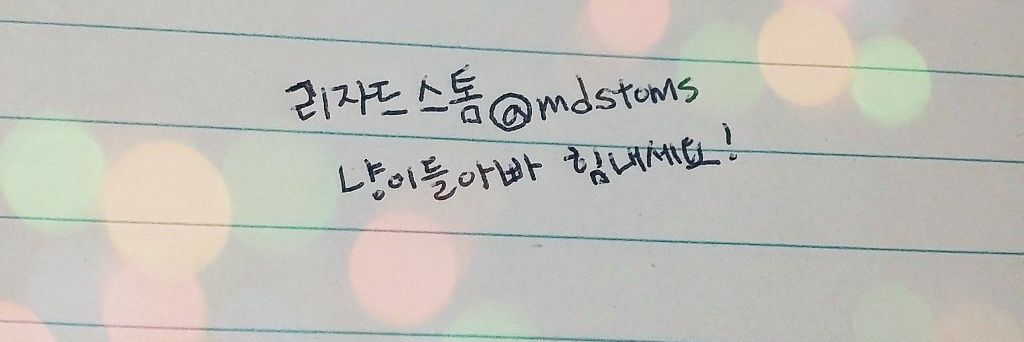 리자드 스톰@mdstoms
냥이들아빠 힘내세요!